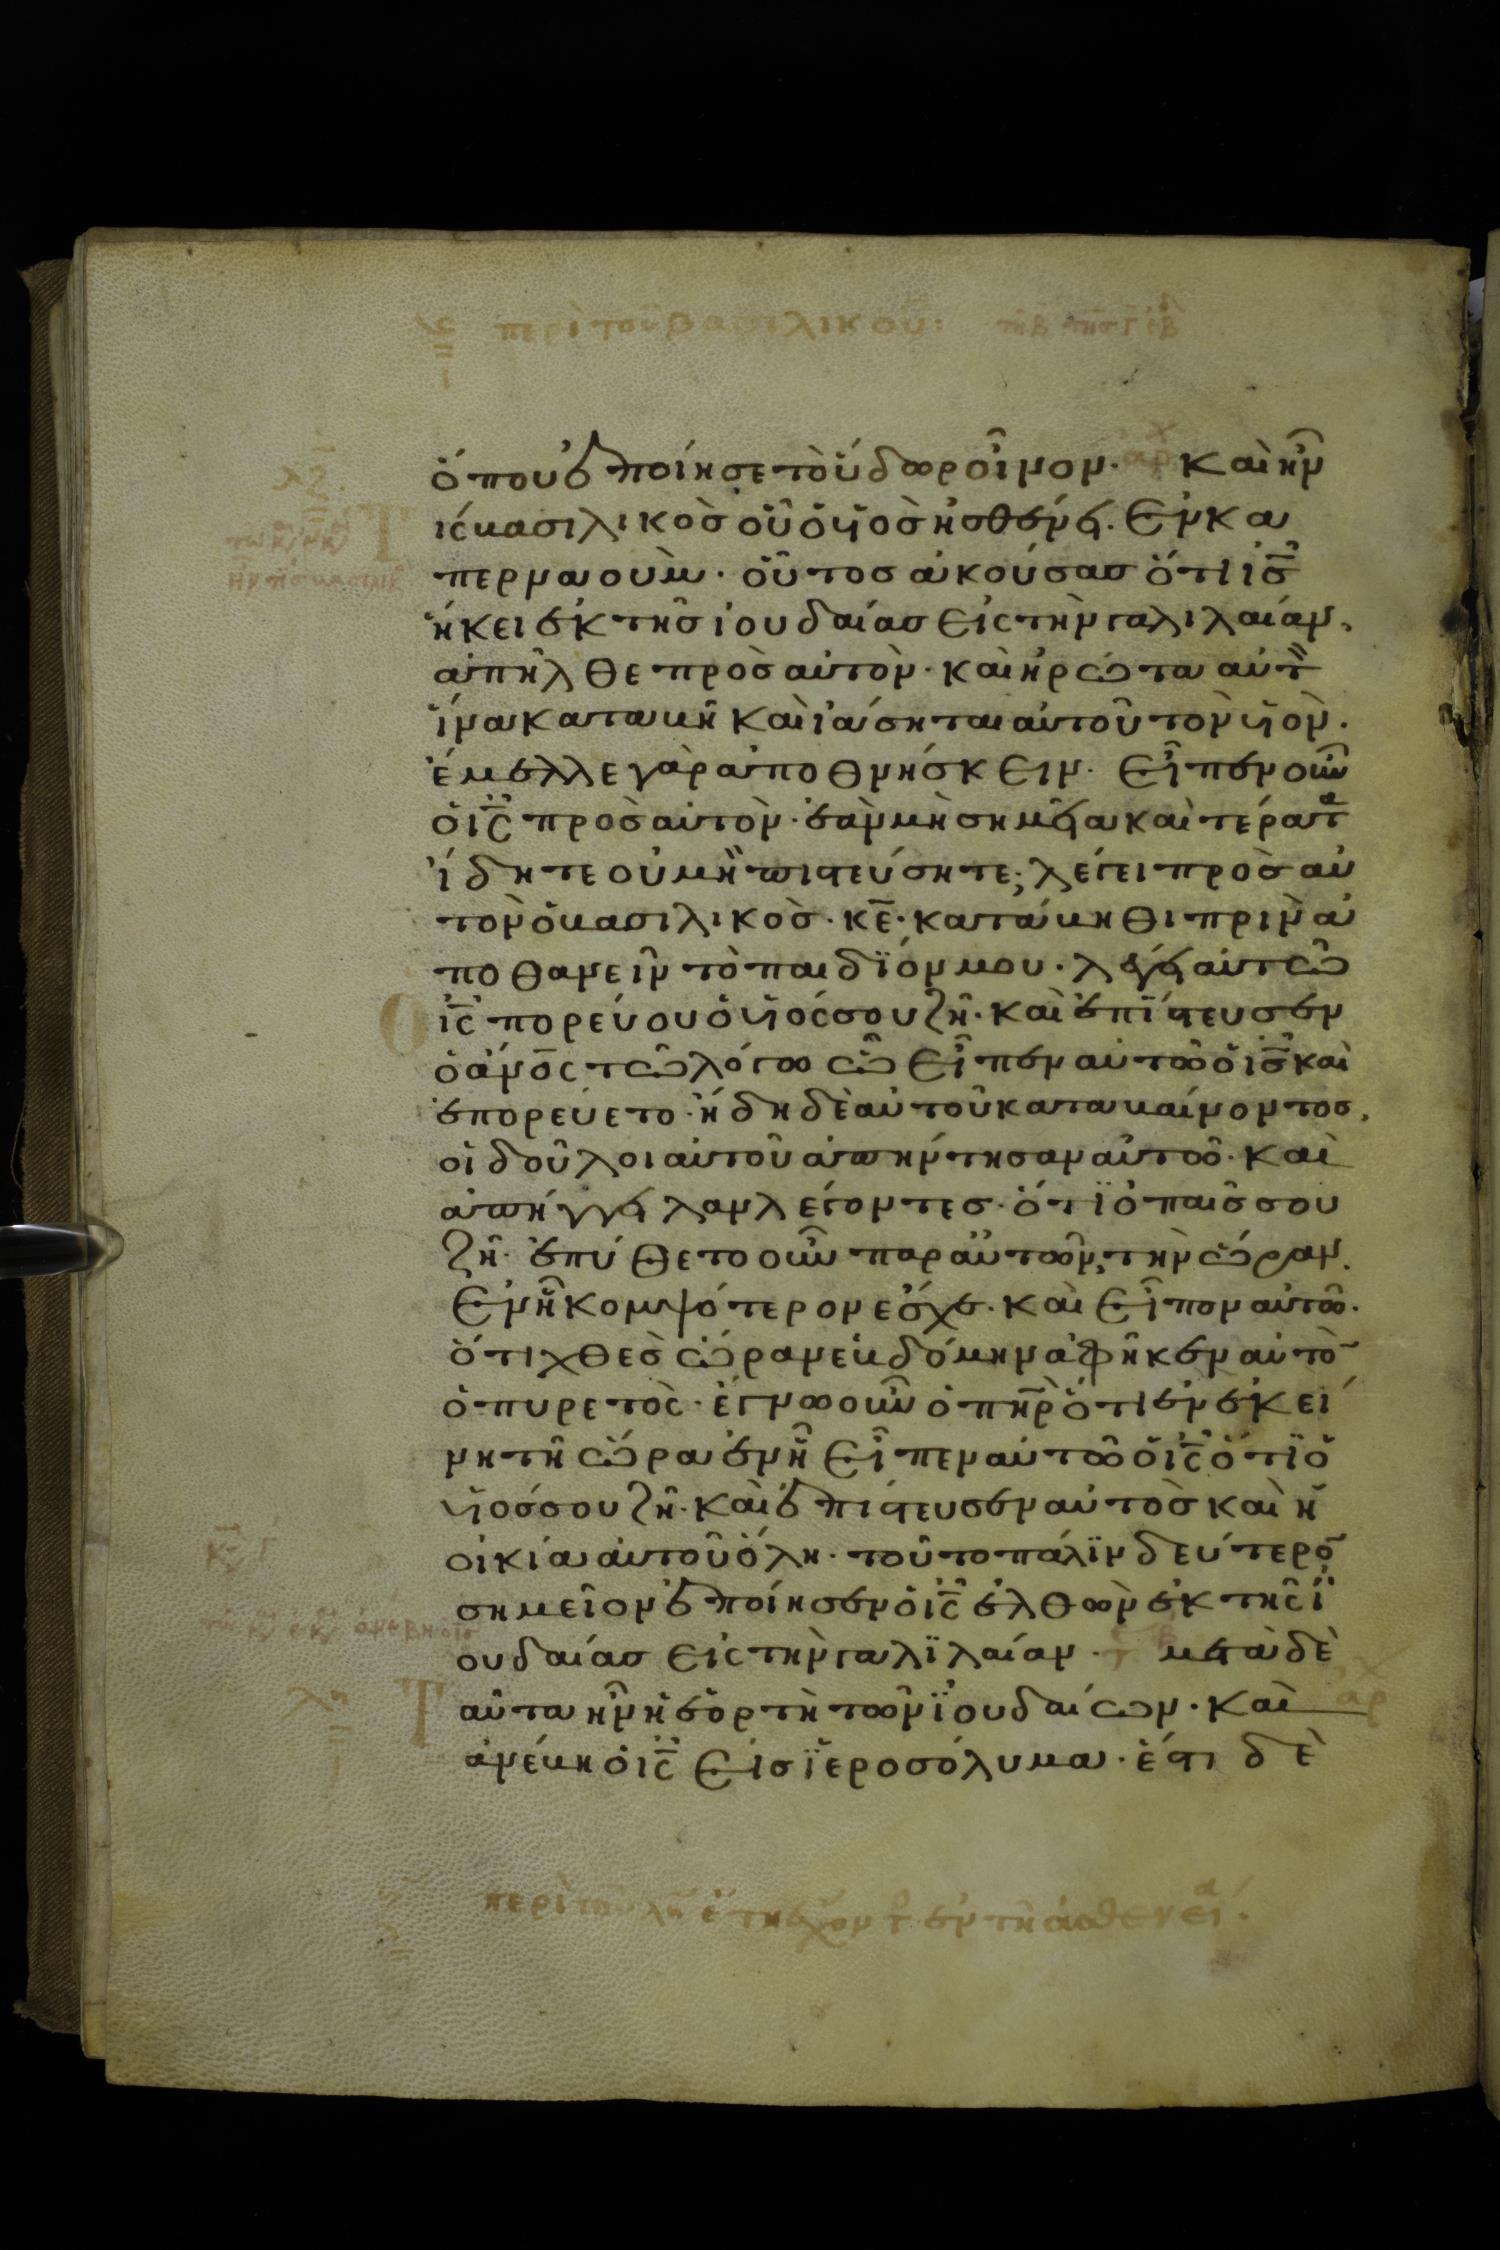 περὶ τοῦ βασιλικοῦ:
ὅπου ἐποίησε τὸ ὕδωρ οἶνον· Καὶ ἦν
τις βασιλικὸσ οὗ ὁ υἱὸσ ἠσθένει. Ἐν κα
περναοὺμ· οὗτοσ ἀκούσασ ὅτι ἰσ̅
ἥκει ἐκ τῆσ ἰουδαίασ εἰς τὴν γαλιλαίαν,
ἀπῆλθε πρὸσ αὐτὸν· καὶ ἠρώτα αὐτ
ἵνα καταβῆ καὶ ἰάσηται αὐτοῦ τὸν υἱὸν.
ἔμελλε γὰρ ἀποθνήσκειν· Εἶπεν οὖν
ὁ ις̅ πρὸσ αὐτὸν· ἐὰν μὴ σημεῖα καὶ τέρατα
ἴδητε οὐ μὴ πιστεύσητε; λέγει πρὸσ αὐ
τὸν ὁ βασιλικὸσ· κε̅· κατάβηθι πρὶν ἀ
ποθανεῖν τὸ παιδΐον μου· λέγει αὐτῶ
ὁ ις̅ πορεύου ὁ υἱός σου ζῆ· καὶ ἐπίστευσεν
ὁ ἄνο̅ς τῶ λόγω ὧ εἶπεν αὐτῶ ὁ ισ̅ καὶ
ἐπορεύετο· ἤδη δὲ αὐτοῦ καταβαίνοντοσ,
οἱ δοῦλοι αὐτοῦ ἀπήντησαν αὐτῶ· καὶ
ἀπήγγειλαν λέγοντεσ· ὅτΐ ὁ παῖσ σου
ζῆ· ἐπύθετο οὖν παρ αὐτῶν, τὴν ὥραν.
Ἐν ἧ κομψότερον ἔσχε· καὶ εἶπον αὐτῶ·
ὅτι χθὲσ ὥραν ἑβδόμην ἀφῆκεν αὐτὸ̅
ὁ πυρετὸς· ἔγνω οὖν ὁ πη̅ρ ὅτι ἐν ἐκεί
νη τῆ ὥρα ἐν ἧ εἶπεν αὐτῶ ὁ ις̅ ὅτΐ ὁ
υἱόσ σου ζῆ· καὶ ἐπίστευσεν αὐτὸσ καὶ ἡ
οἰκία αὐτοῦ ὅλη· τοῦτο πάλΐν δεύτερο̅
σημεῖον ἐποίησεν ὁ ις̅ ἐλθὼν ἐκ τῆς ἰ
ουδαίασ εἰς τὴν γαλΐλαίαν· μετὰ δὲ
Ταῦτα ἦν ἡ ἑορτὴ τῶν ἰουδαίων· καὶ
ἀνέβη ὁ ις̅ εἰσ ἱεροσόλυμα· ἔστι δὲ